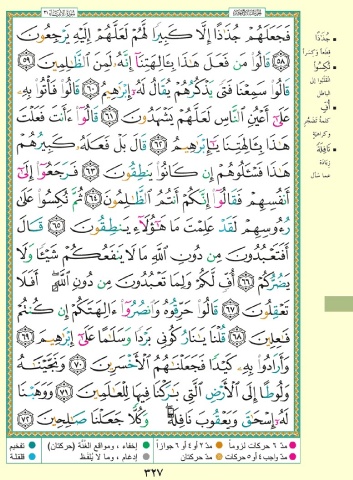 فَجَعَلَهُمْ جُذَٰذًا إِلَّا كَبِيرًا لَّهُمْ لَعَلَّهُمْ إِلَيْهِ يَرْجِعُونَ
﴿٥٨﴾ قَالُوا۟ مَن فَعَلَ هَٰذَا بِـَٔالِهَتِنَآ إِنَّهُۥ لَمِنَ ٱلظَّٰلِمِينَ ﴿٥٩﴾
قَالُوا۟ سَمِعْنَا فَتًى يَذْكُرُهُمْ يُقَالُ لَهُۥٓ إِبْرَٰهِيمُ ﴿٦٠﴾ قَالُوا۟ فَأْتُوا۟ بِهِۦ
عَلَىٰٓ أَعْيُنِ ٱلنَّاسِ لَعَلَّهُمْ يَشْهَدُونَ ﴿٦١﴾ قَالُوٓا۟ ءَأَنتَ فَعَلْتَ
هَٰذَا بِـَٔالِهَتِنَا يَٰٓإِبْرَٰهِيمُ ﴿٦٢﴾ قَالَ بَلْ فَعَلَهُۥ كَبِيرُهُمْ
هَٰذَا فَسْـَٔلُوهُمْ إِن كَانُوا۟ يَنطِقُونَ ﴿٦٣﴾ فَرَجَعُوٓا۟ إِلَىٰٓ
أَنفُسِهِمْ فَقَالُوٓا۟ إِنَّكُمْ أَنتُمُ ٱلظَّٰلِمُونَ ﴿٦٤﴾ ثُمَّ نُكِسُوا۟ عَلَىٰ
رُءُوسِهِمْ لَقَدْ عَلِمْتَ مَا هَٰٓؤُلَآءِ يَنطِقُونَ ﴿٦٥﴾ قَالَ
أَفَتَعْبُدُونَ مِن دُونِ ٱللَّهِ مَا لَا يَنفَعُكُمْ شَيْـًٔا وَلَا
يَضُرُّكُمْ ﴿٦٦﴾ أُفٍّ لَّكُمْ وَلِمَا تَعْبُدُونَ مِن دُونِ ٱللَّهِ أَفَلَا
تَعْقِلُونَ ﴿٦٧﴾ قَالُوا۟ حَرِّقُوهُ وَٱنصُرُوٓا۟ ءَالِهَتَكُمْ إِن كُنتُمْ
فَٰعِلِينَ ﴿٦٨﴾ قُلْنَا يَٰنَارُ كُونِى بَرْدًا وَسَلَٰمًا عَلَىٰٓ إِبْرَٰهِيمَ ﴿٦٩﴾
وَأَرَادُوا۟ بِهِۦ كَيْدًا فَجَعَلْنَٰهُمُ ٱلْأَخْسَرِينَ ﴿٧٠﴾ وَنَجَّيْنَٰهُ
وَلُوطًا إِلَى ٱلْأَرْضِ ٱلَّتِى بَٰرَكْنَا فِيهَا لِلْعَٰلَمِينَ ﴿٧١﴾ وَوَهَبْنَا
لَهُۥٓ إِسْحَٰقَ وَيَعْقُوبَ نَافِلَةً وَكُلًّا جَعَلْنَا صَٰلِحِينَ ﴿٧٢﴾
جُذَاذًا
قِطَعًا وكِسَرًا
نُكِسُوا
انقلبوا إلى
الباطل
أُفٍّ
كلمة تضجّر
وكراهية
نَافِلَةً
زيادة
عمّا سأل
مدّ ٦ حركات لزوماً مدّ ٢ أو ٤ أو ٦ جوازاً إخفاء، ومواقع الغُنَّة (حركتان) تفخيم
مدّ واجب ٤ أو ٥ حركات مدّ حركتان إدغام، وما لا يُلفَظ قلقلة
٣٢٧